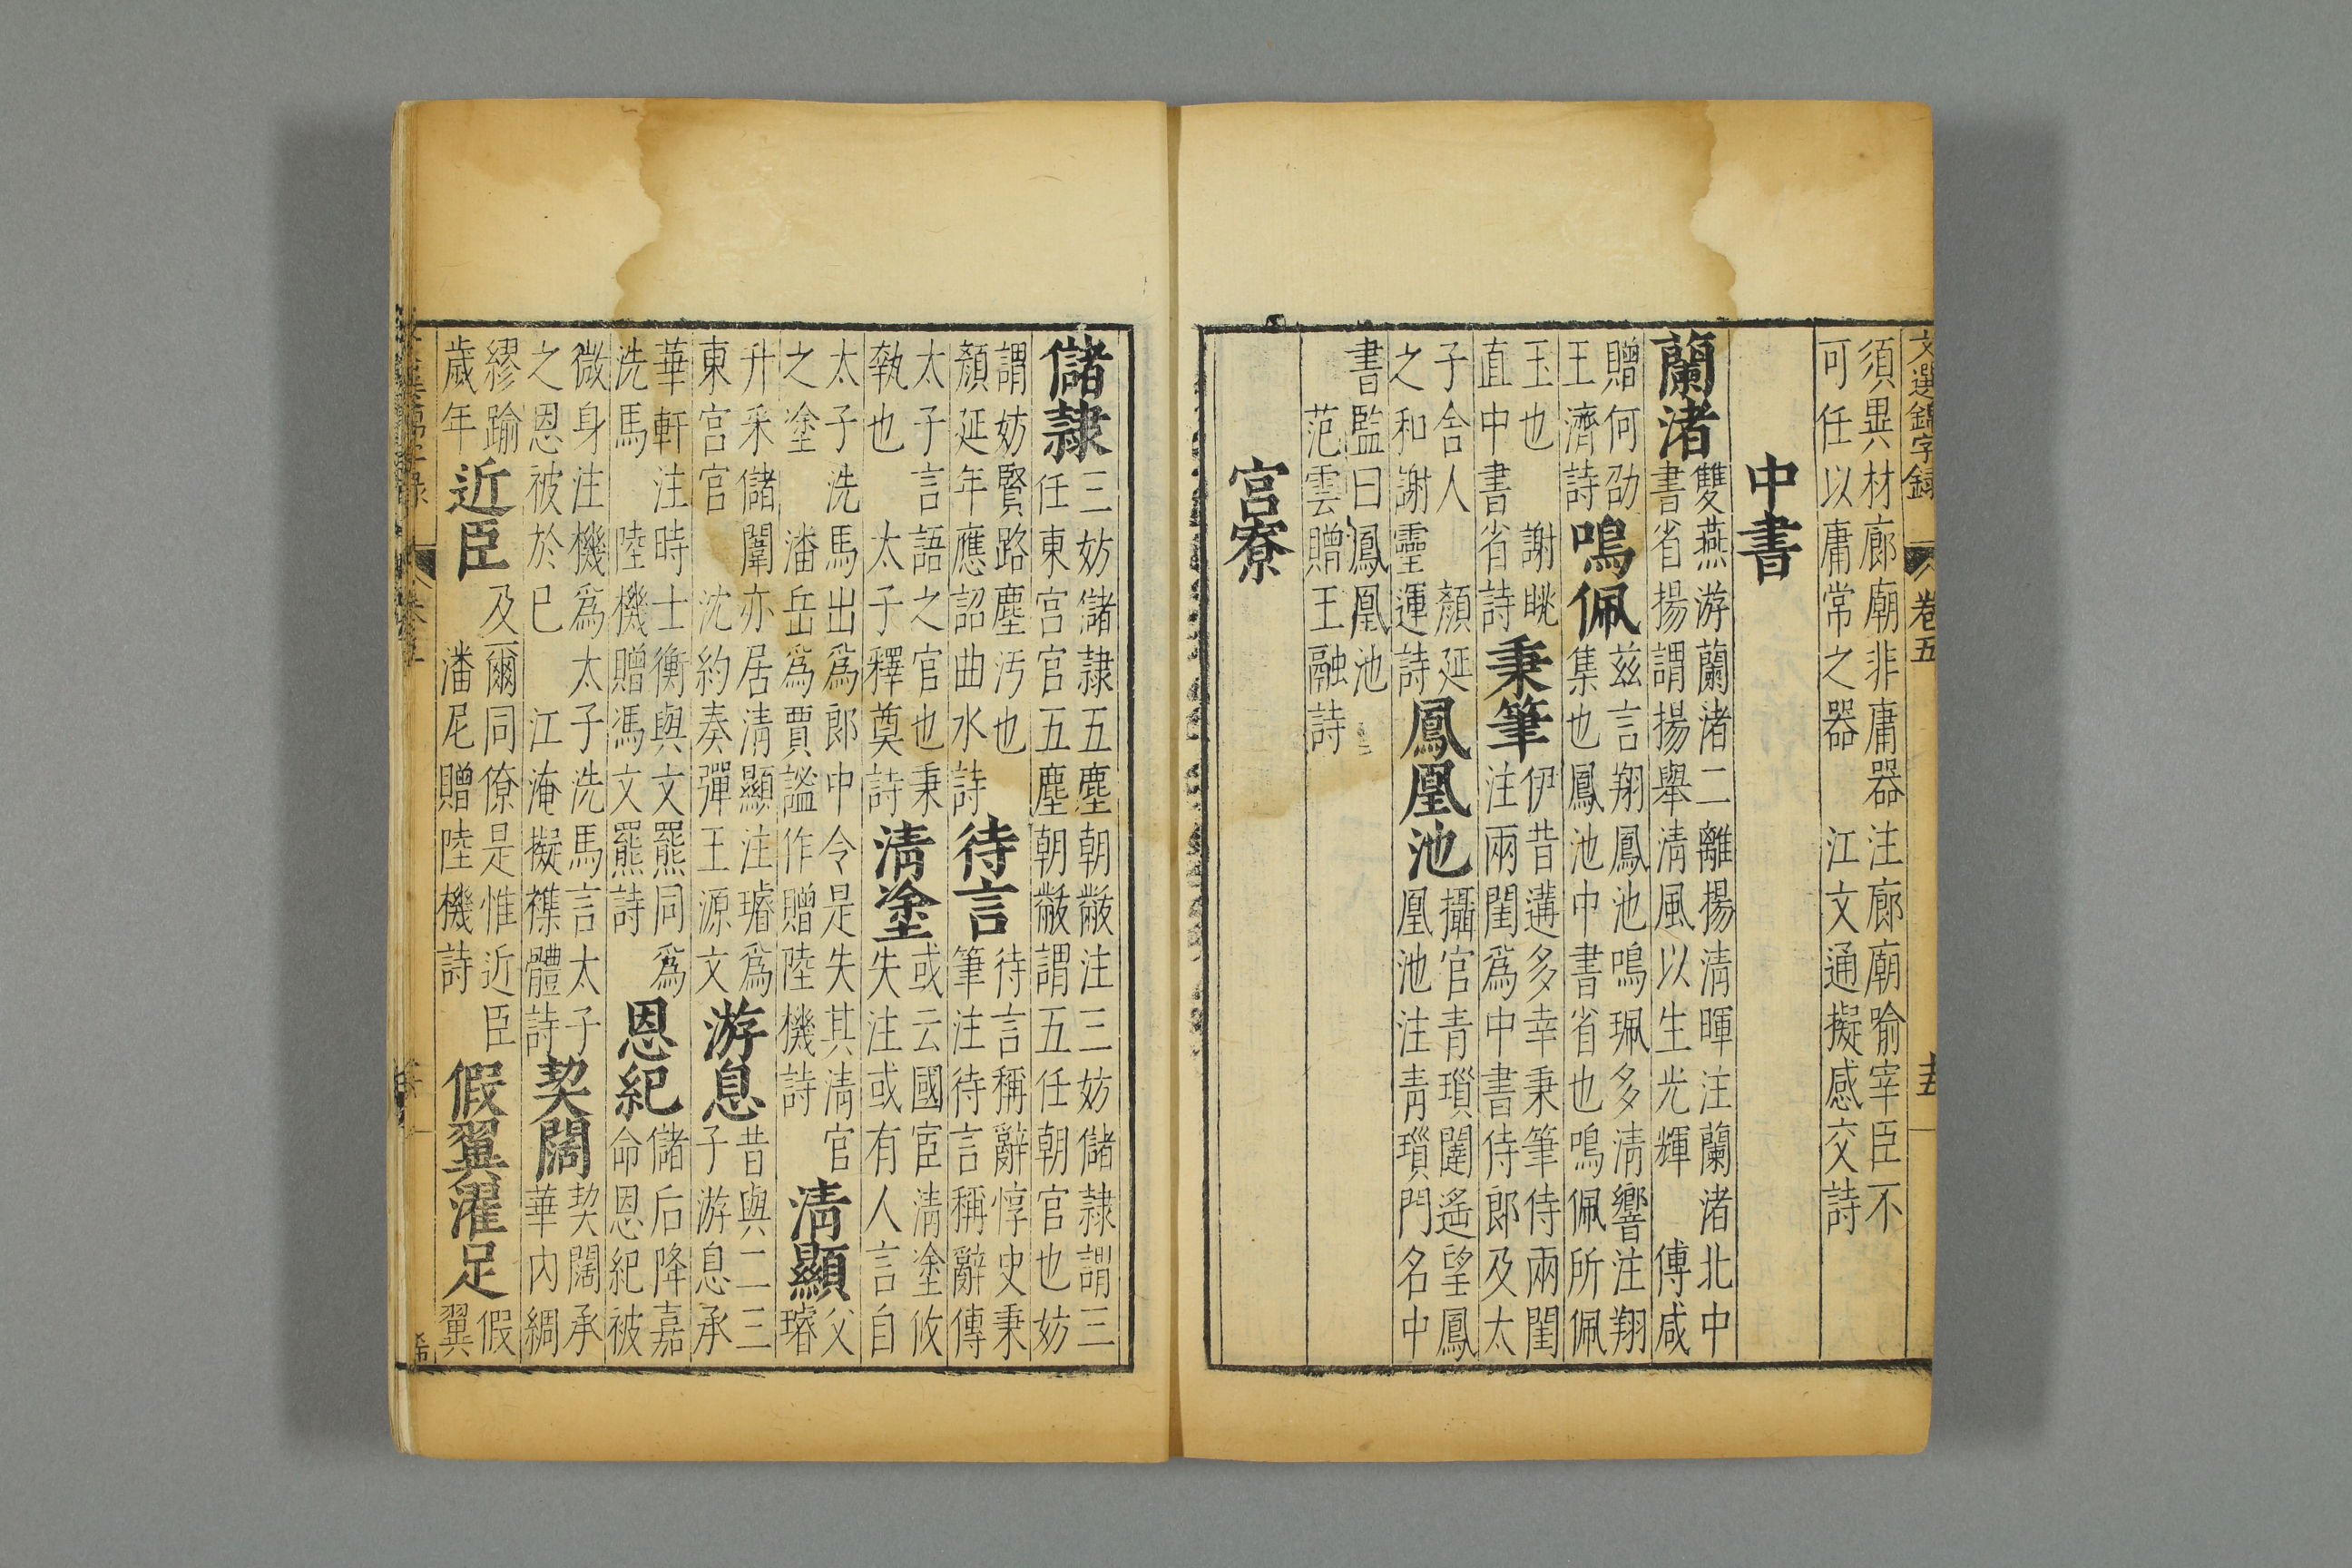 文選錦字錄 卷五
須異材廊廟非庸器注廊廟喻宰臣不
可任以庸常之器 江文通擬感交詩
中書
蘭渚
雙燕游蘭渚二離揚清暉注蘭渚北中
書省揚謂揚舉清風以生光輝 傅咸
贈何劭
王濟詩
鳴佩
茲言翔鳳池鳴珮多清響注翔
集也鳳池中書省也鳴佩所佩
玉也 謝眺
直中書省詩
秉筆
伊昔遘多幸秉筆侍兩閨
注兩閨爲中書侍郎及太
子舍人 顏延
之和謝靈運詩
鳳凰池
攝官青瑣闥遙望鳳
凰池注青瑣門名中
書監曰鳳凰池
范雲贈王融詩
宮寮
儲隸
三妨儲隸五塵朝黻注三妨儲隸謂三
任東宮官五塵朝黻謂五任朝官也妨
謂妨賢路塵汚也
顏延年應詔曲水詩
待言
待言稱辭惇史秉
筆注待言稱辭傳
太子言語之官也秉
執也 太子釋奠詩
清塗
或云國宦清塗攸
失注或有人言自
太子洗馬出爲郎中令是失其清官
之塗 潘岳爲賈謐作贈陸機詩
清顯
父
璿
升采儲闈亦居清顯注璿爲
東宮官 沈約奏彈王源文
游息
昔與二三
子游息承
華軒注時士衡與文羆同爲
洗馬 陸機贈馮文羆詩
恩紀
儲后降嘉
命恩紀被
微身注機爲太子洗馬言太子
之恩被於已 江淹擬襍體詩
契闊
契闊承
華內綢
繆踰
歲年
近臣
及爾同僚是惟近臣
潘尼贈陸機詩
假翼濯足
假
翼